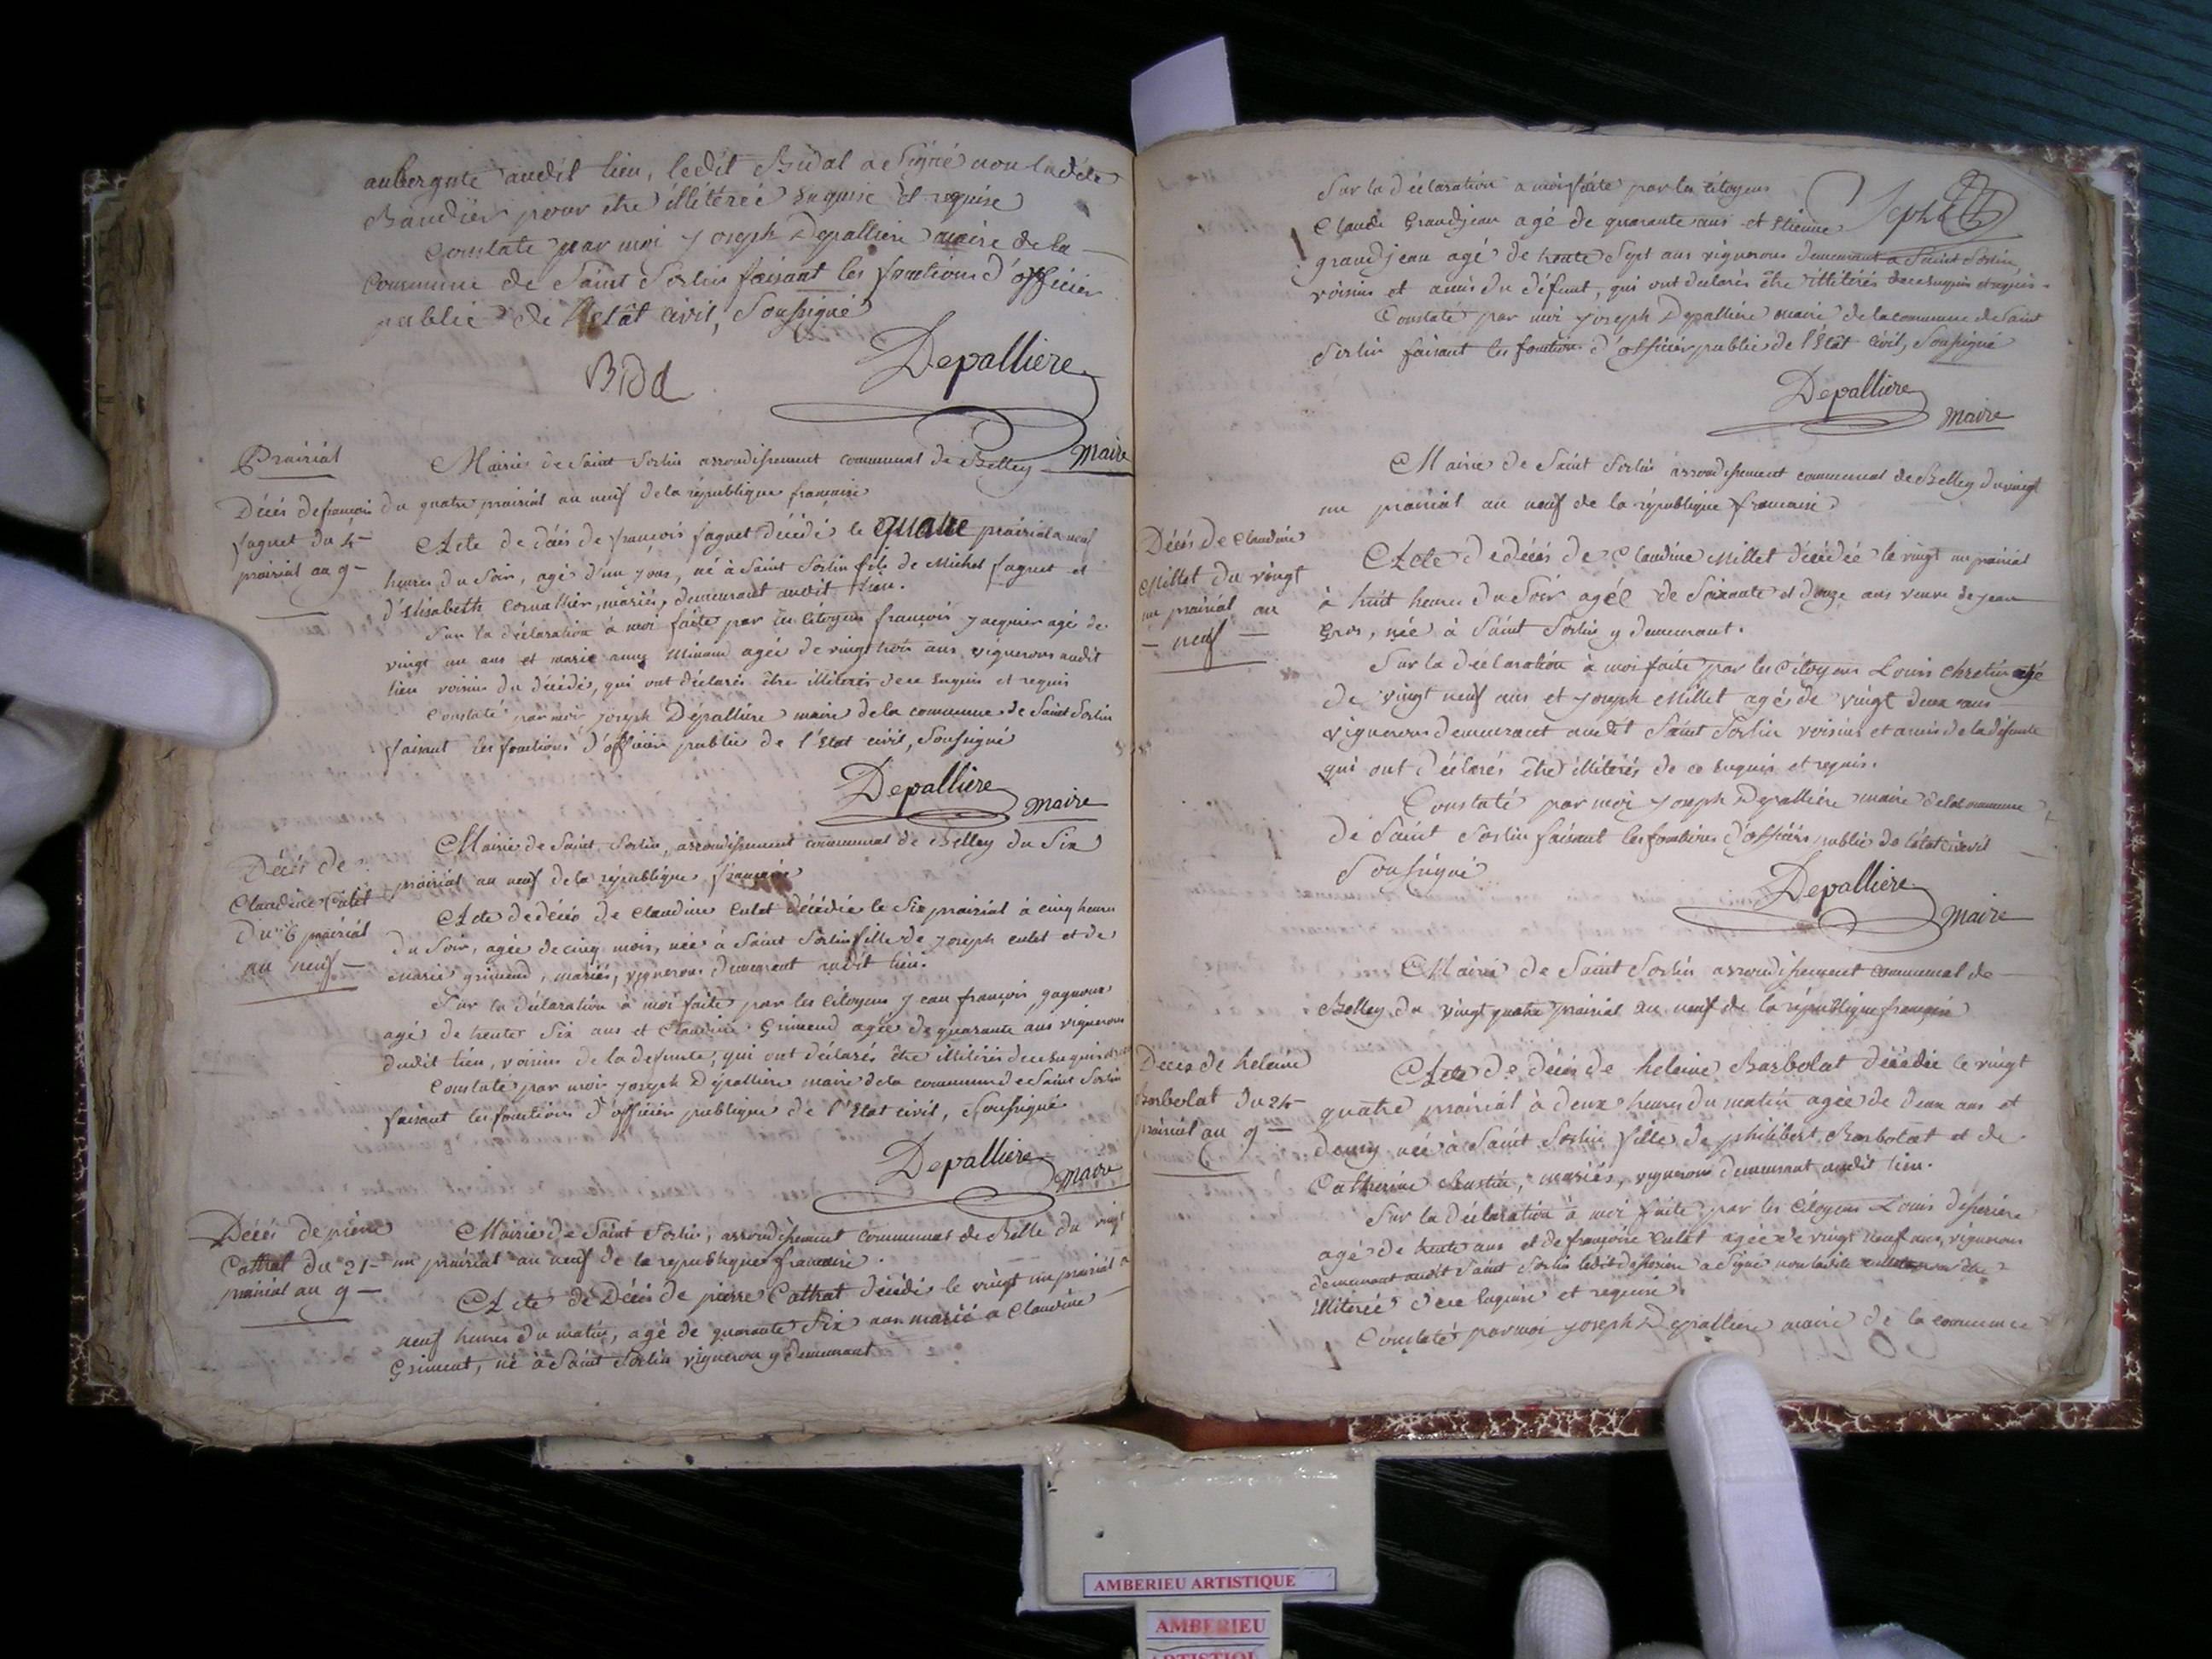 aubergiste audit lieu, ledit Bidal a signé non ladite
Baudier pour être illiterée enquise et requise
Constaté par moi Joseph Depalliere maire de la
Commune de Saint Sorlin faisant les fonctions d'officier
public de l'etât civil, Soussigné
Bidal
Depalliere
Maire
Prairial
Mairie de Saint Sorlin arrondissement communal de Belley
du quatre prairial an neuf de la république française
Décès de françois
faguet du 4
prairial an 9
Acte de décès de françois faguet décédé le quatre prairial a neuf
heures du soir, agé d'un jour, né à Saint Sorlin fils de Michel faguet et
d'Elisabeth Cornallier, mariés, demeurant audit lieu.
Sur la déclaration à moi faite par les Citoyens françois Jacquier agé de
vingt un ans et marie anne Minand agée de vingt trois ans, vignerons audit
lieu voisins du décédé, qui ont déclarés être illiterés de ce enquis et requis
Constaté par moi Joseph Depalliere maire de la commune de Saint Sorlin
faisant les fonctions d'officier public de l'Etat civil, Soussigné
Depalliere
Maire
Mairie de Saint Sorlin, arrondissement communal de Belley du Six
prairial an neuf de la république française
Décès de
Claudine Culet
du 6 prairial
an neuf
Acte de décès de Claudine Culet décédée le Six prairial à cinq heures
du Soir, agée de cinq mois, née à Saint Sorlin fille de Joseph culet et de
marie grimend, mariés, vignerons demeurant audit lieu.
Sur la déclaration à moi faite par les Citoyens Jean françois
agé de trente Six ans et Claudine Grimend agée de quarante ans vignerons
dudit lieu, voisins de la defunte, qui ont déclarés être illiterés de ce enquis
Constaté par moi Joseph Depalliere maire de la commune de Saint Sorlin
faisant les fonctions d'officier publique de l'Etat civil, Soussigné
Depalliere
Maire
Décès de pierre
Cattrat du 21
prairial an 9
Mairie de Saint Sorlin, arrondissement communal de Belle du vingt
un prairial an neuf de la republique francaise
Acte de Décès de pierre Cattrat décédé le vingt un prairial a
neuf heures du matin, agé de quarante Six ans marié a Claudine
Griment, né à Saint Sorlin vigneron y demeurant
Sur la déclaration a moi faite par les citoyens
Claude Grandjean agé de quarante ans et Etienne
grandjean agé de trente Sept ans vignerons demeurant a Saint Sorlin,
voisins et amis du défunt, qui ont declarés être illitérés de ce enquis et requis.
Constaté par moi Joseph Depalliere maire de la commune de Saint
Sorlin faisant les fonctions d'officier public de l'Etât Civil, Soussigné
Depalliere
Maire
Mairie de Saint Sorlin arrondissement communal de Belley du vingt
un prairial an neuf de la république francaise
Décès de Claudine
Millet du vingt
un prairial an
neuf
Acte de décès de Claudine Millet décédée le vingt un prairial
à huit heures du Soir agée de Soixante et douze ans veuve de jean
Gros, née à Saint Sorlin y demeurant.
Sur la déclaration à moi faite par les Citoyens Louis Chretien agé
de vingt neuf ans et Joseph Millet agé de vingt deux ans
vignerons demeurant audit Saint Sorlin voisins et amis de la défunte
qui ont déclarés être illiterés de ce enquis et requis.
Constaté par moi Joseph Depalliere maire de la commune
de Saint Sorlin faisant les fonctions d'officier public de l'état civil
Soussigné
Depalliere
Maire
Mairie de Saint Sorlin arrondissement communal de
Belley du vingt quatre prairial an neuf de la république française
Deces de heleine
Barbolat du 24
prairial an 9
Acte de décès de heleine Barbolat décédée le vingt
quatre prairial à deux heures du matin agée de deux ans et
demy, née à Saint Sorlin fille de philibert Barbolat et de
Catherine mariés, vignerons demeurant audit lieu.
Sur la déclaration à moi faite par les Citoyens Louis
agé de trente ans et de françoise Culet agée de vingt neuf ans, vignerons
demeurant audit Saint Sorlin a Signé non ladite culet pour être
illiterée de ce Enquise et requise.
Constaté par moi Joseph Depalliere maire de la commune
AMBERIEU ARTISTIQUE
AMBERIEU
ARTISTIQUE